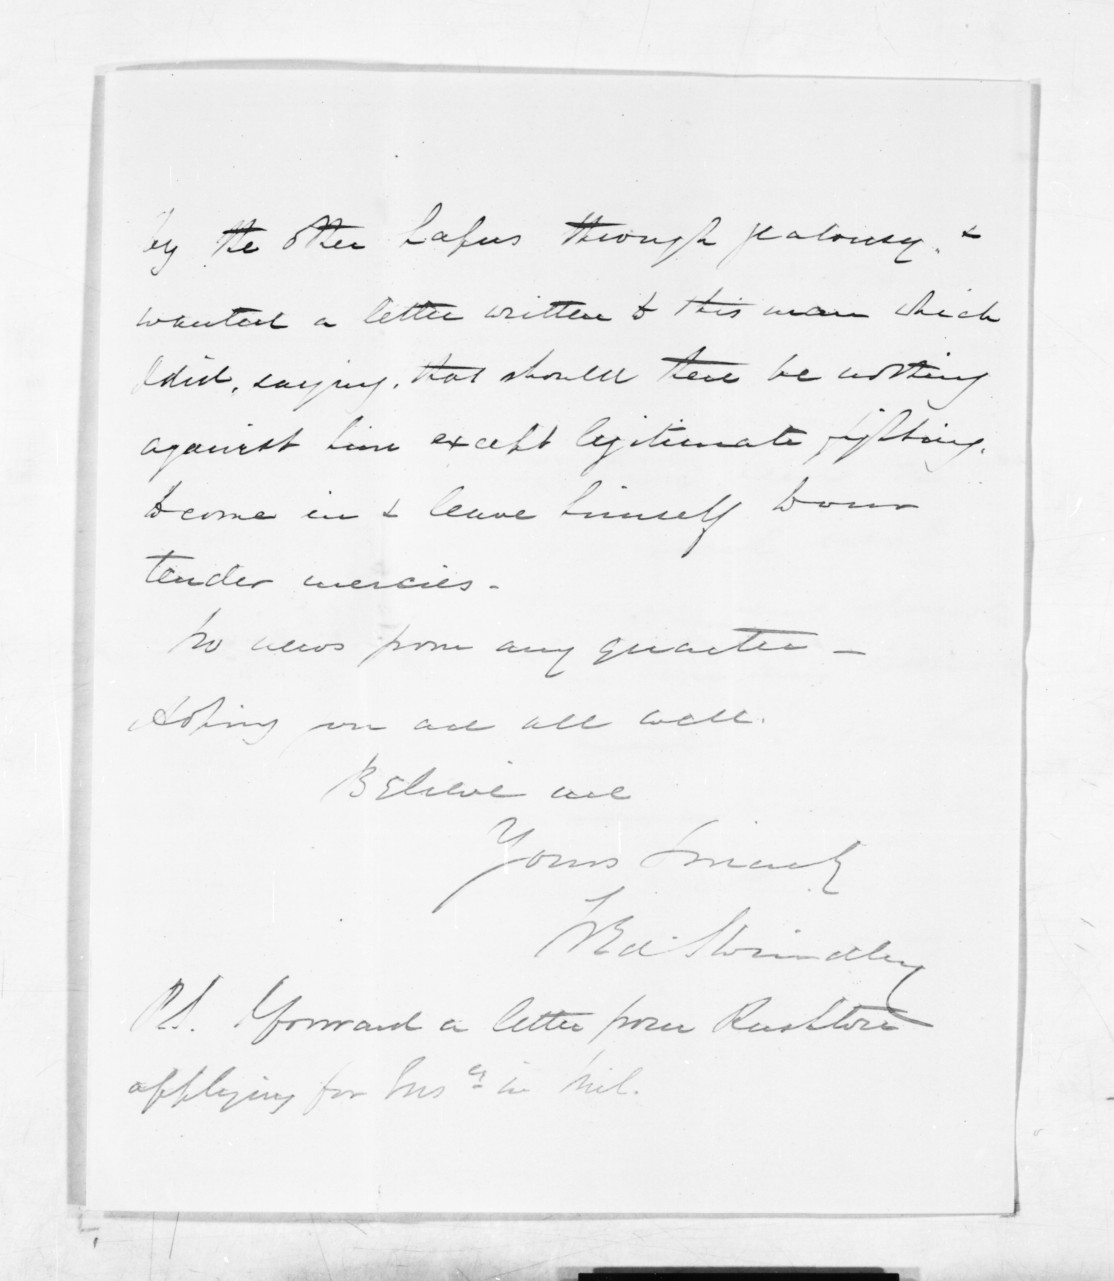 by the other hapus through jealousy. &
wanted a letter written to this man which
I did, saying, that should there be nothing
against him except legitimate fighting.
to come in & leave himself to our
tender mercies -
No news from any quarter -
Hoping you are all well.
Believe me
Yours Sincerely
Fred. Swindley
P.S. I forward a letter from Rushton
applying for Ens cy in Mil.